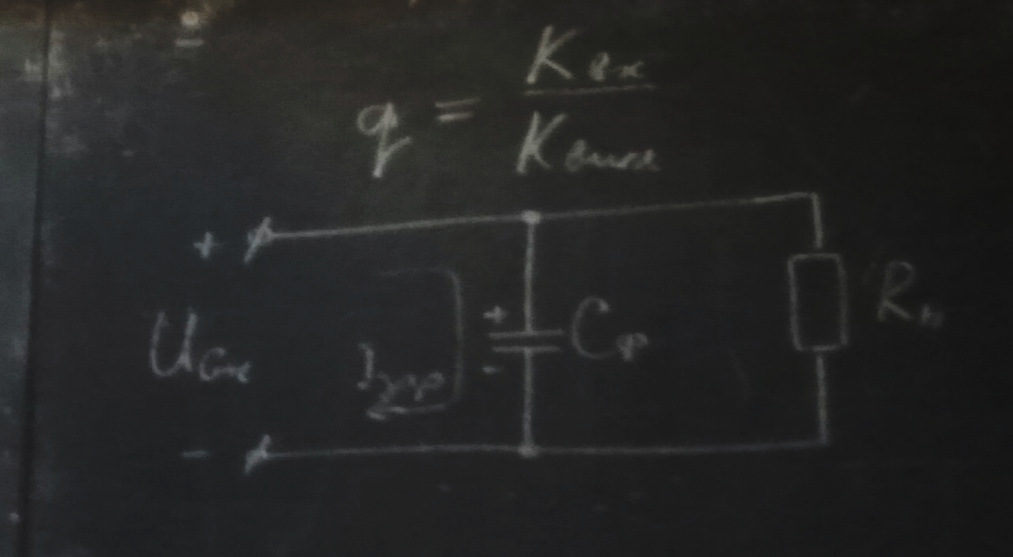 q = Kвх / Kвых
+
Uвх
-
Iзар
+
-
Cф
Rн